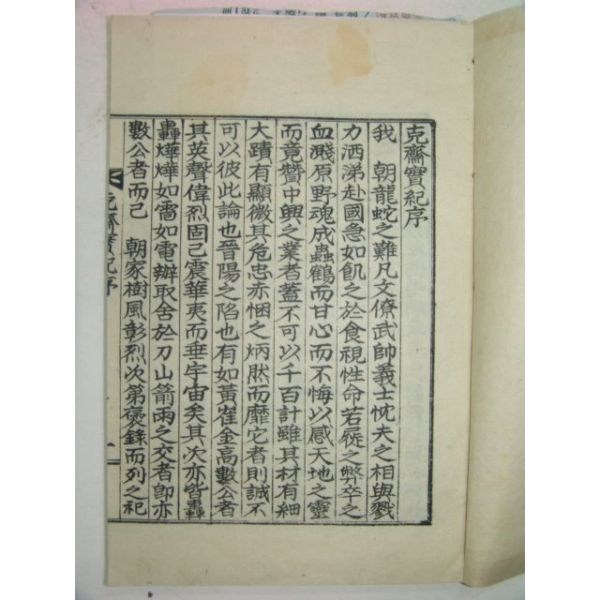 克齋實紀序
我　朝龍蛇之難凡文僚武帥義士忱夫之相與戮
力洒涕赴國急如飢之於食視性命若屣之弊卒之
血濺原野魂成蟲鶴而甘心而不悔以感天地之靈
而竟贊中興之業者蓋不可以千百計雖其材有細
大蹟有顯微其危忠赤悃之炳然而靡它者則誠不
可以彼此論也晉陽之陷也有如黃崔金高數公者
其英聲偉烈固已震華夷而垂宇宙矣其次亦皆轟
轟燁燁如雷如電辦取舍於刀山箭雨之交者卽亦
數公者而已　朝家樹風彰烈次第褒錄而列之祀
克齋實紀序
一